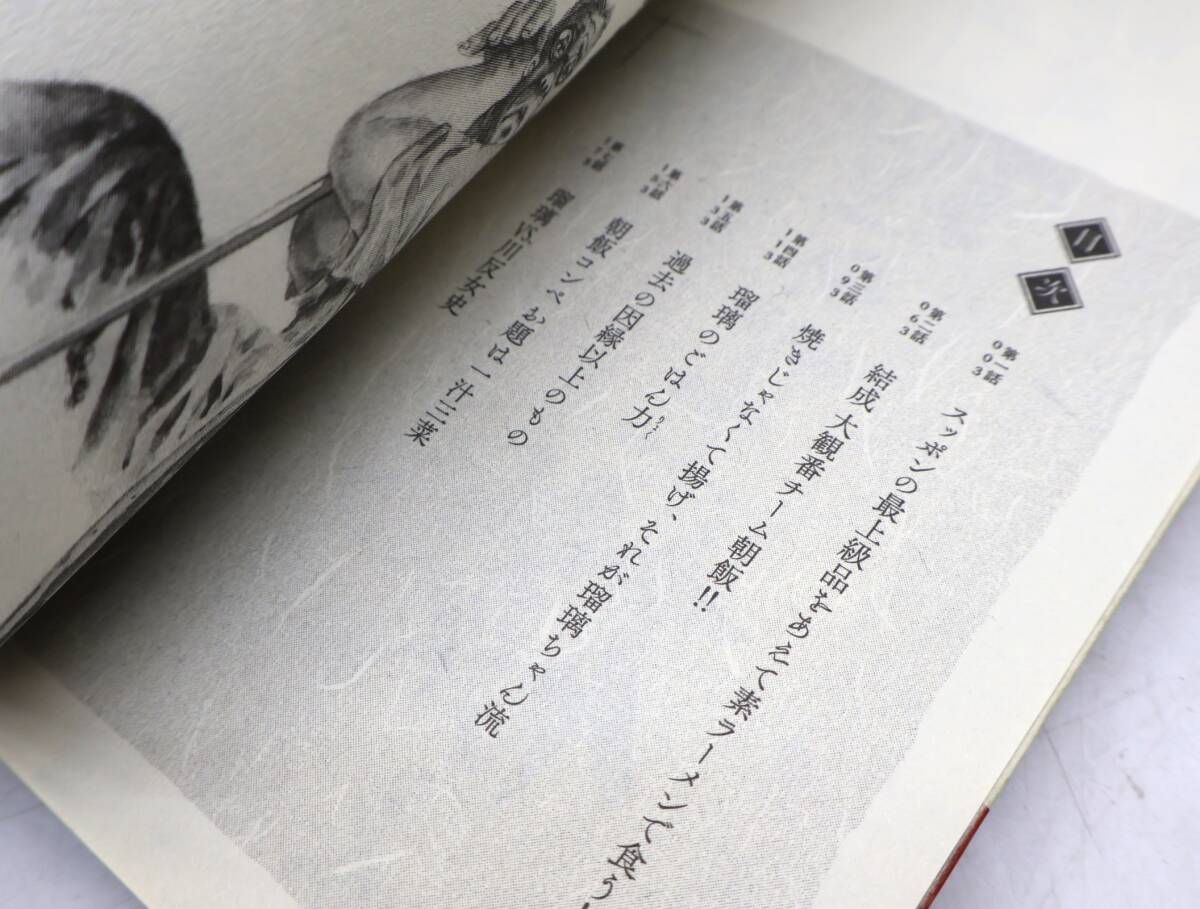 目次
第一話
003
スッポンの最上級品をあえて素ラーメンで食う
第二話
063
結成大観番チーム朝飯!!
第三話
093
焼きじゃなくて揚げ、それが瑠璃ちゃん流
第四話
113
瑠璃のごはん力
りょく
第五話
133
過去の因縁以上のもの
第六話
153
朝飯コンペお題は一汁三菜
第七話
173
瑠璃VS.川反女史